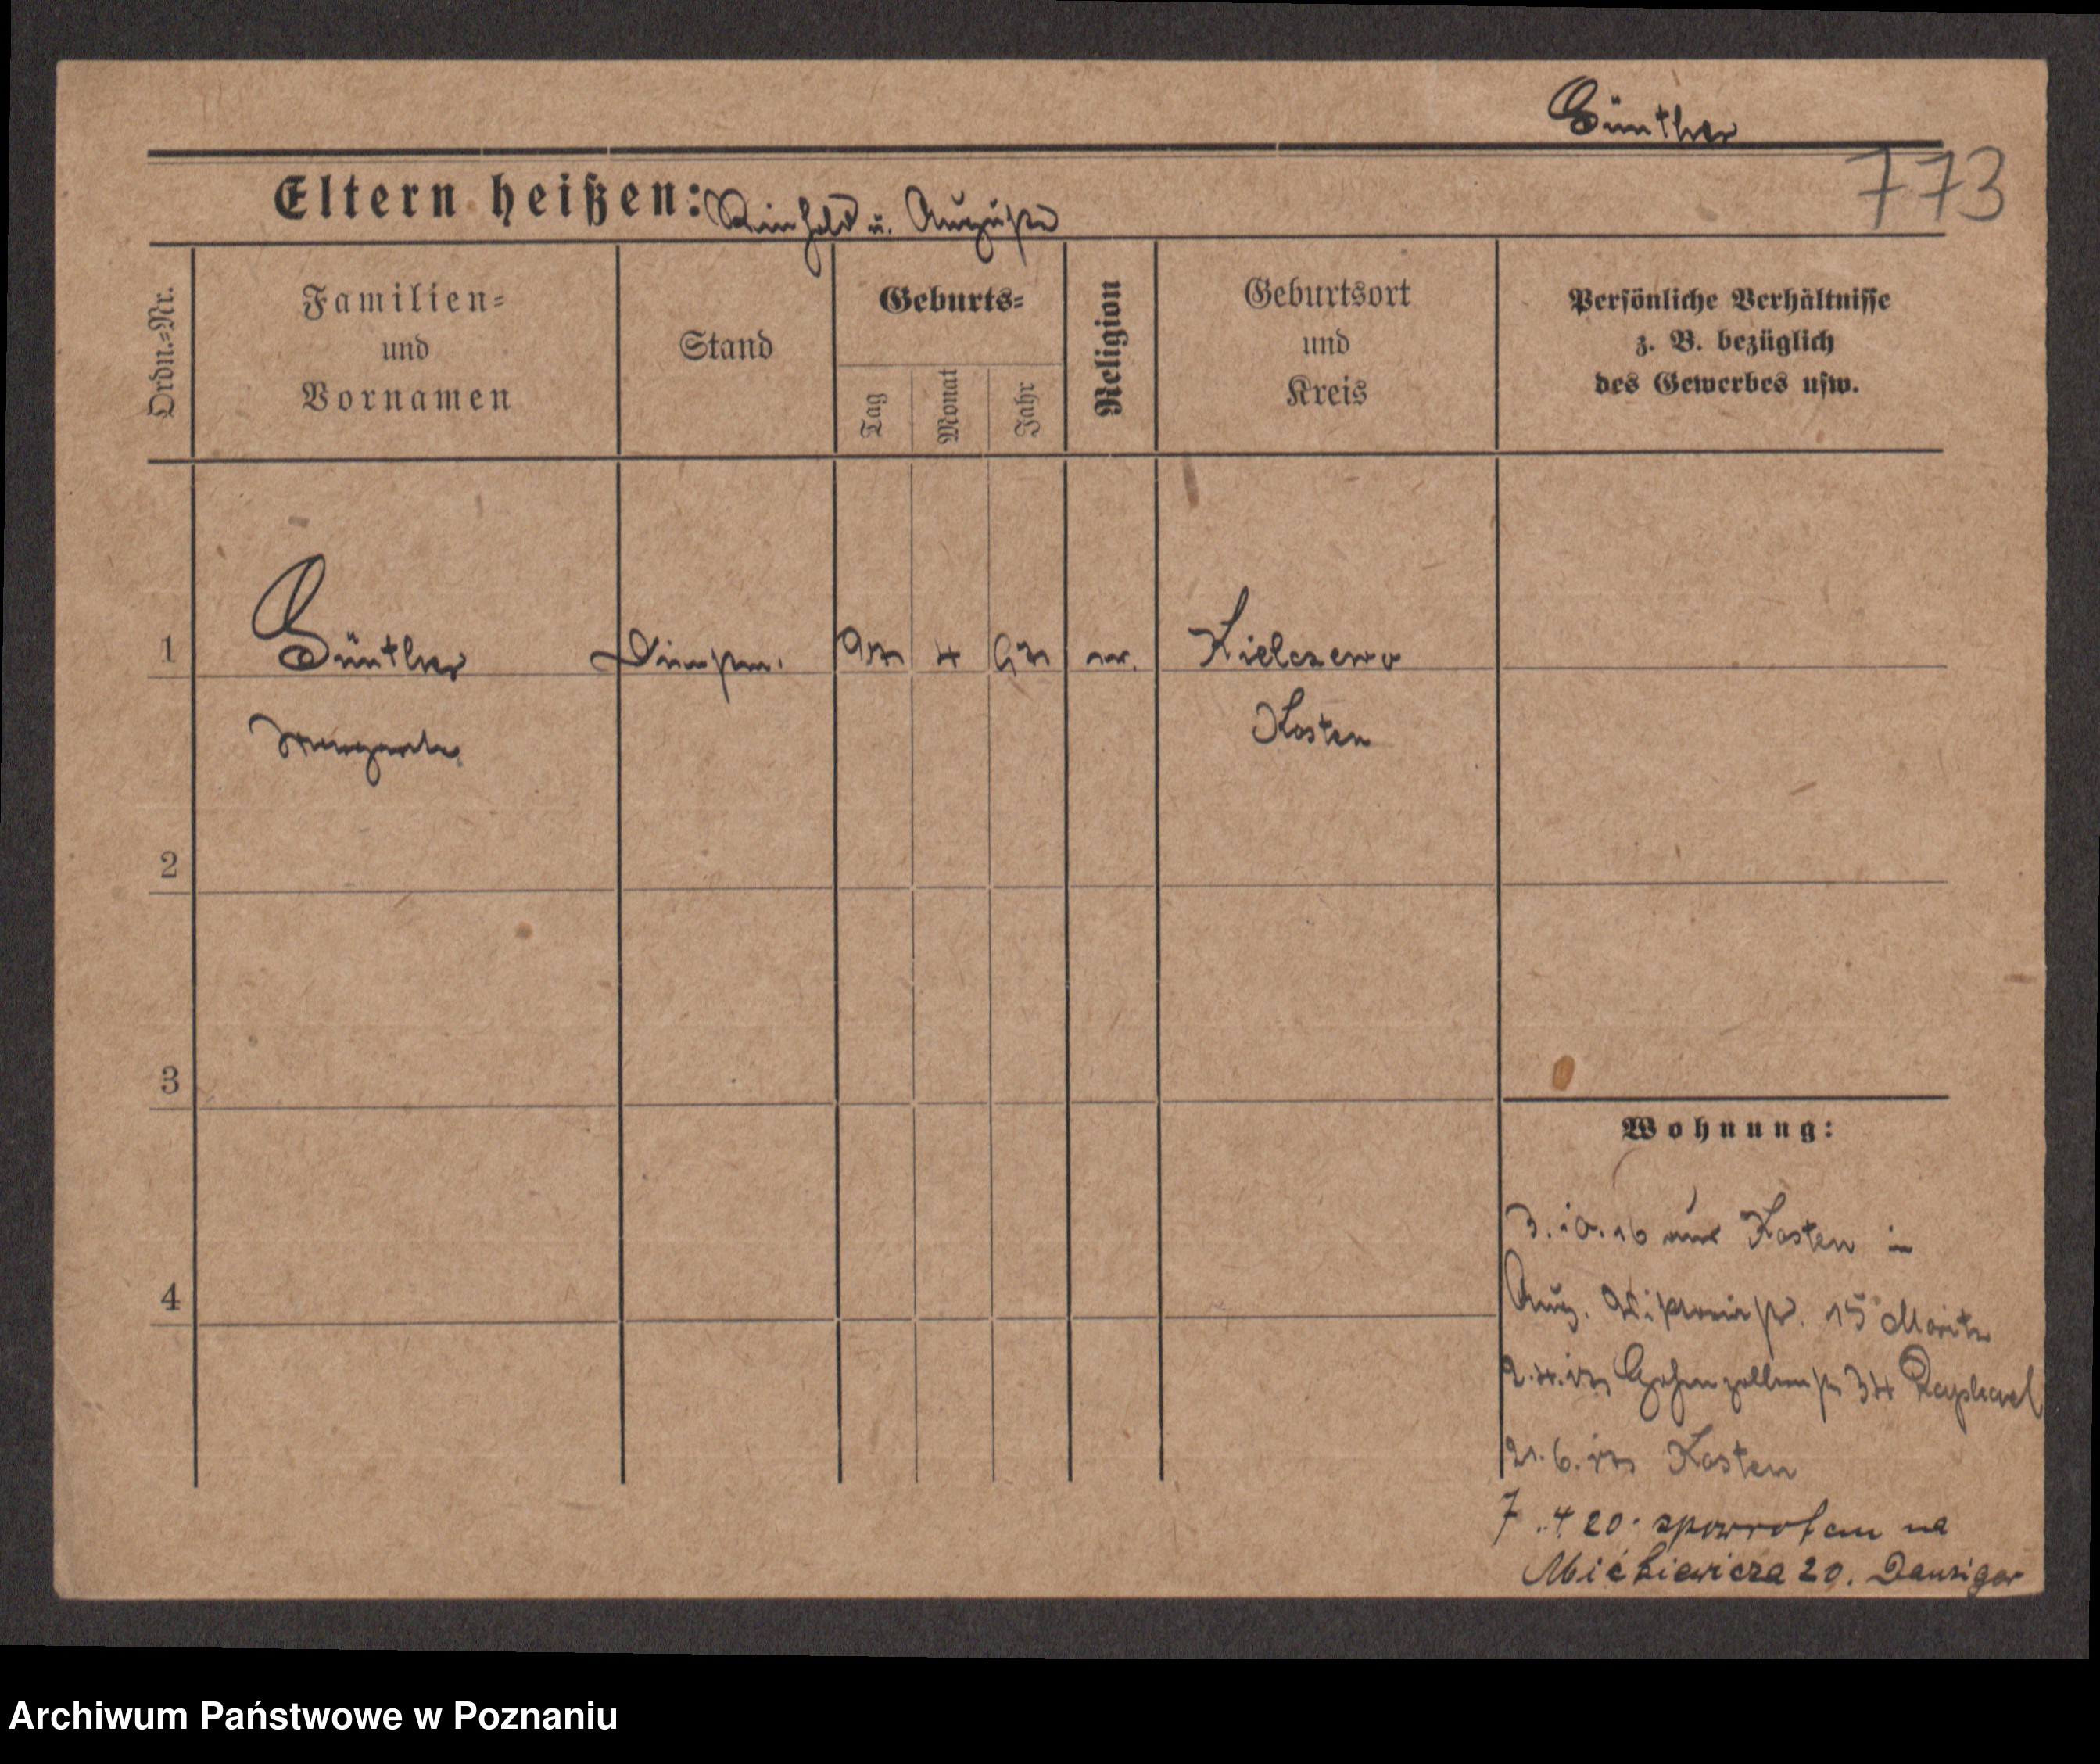 Günther
773
Eltern heißen: Reinhold u. Auguste
Ordn.-Nr.
Familien-
und
Vornamen
Stand
Geburts-
Tag
Monat
Jahr
Religion
Geburtsort
und
Kreis
Persönliche Verhältnisse
z. B. bezüglich
des Gewerbes usw.
1
Günther
Dienstm.
4
Kielczewo
Kosten
2
3
4
Wohnung:
3.10.16 aus Kosten in
Aug. Viktoriastr. 15 Moritz
Hohenzollernstr 34
21.6. Kosten
7.4 20. spowrotem na
Mickiewicza 20. Danziger
Archiwum Państwowe w Poznaniu